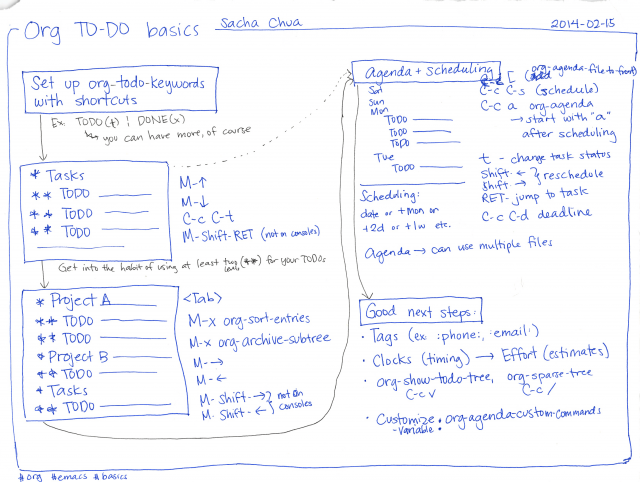 Org TO-DO basics
Sacha Chua
2014-02-15
Set up org-todo-keywords
with shortcuts
Ex: TODO(t) | DONE(x)
you can have more, of course
* Tasks
** TODO
** TODO
** TODO
M-↑
M-↓
C-c C-t
M-Shift-RET (not on consoles)
Get into the habit of using at least two (**) for your TODOs
* Project A
** TODO
** TODO
* Project B
** TODO
* Tasks
** TODO
<Tab>
M-x org-sort-entries
M-x org-archive-subtree
M-→
M-←
M-Shift-→ } not on
M-Shift-← } consoles
Agenda + Scheduling
Sat
Sun
Mon
TODO
TODO
TODO
Tue
TODO
Scheduling:
date or +Mon or
+2d or +1w etc.
[ (org-agenda-file-to-front)
C-c C-s (schedule)
C-c a org-agenda
→ start with "a"
after scheduling
t - change task status
Shift-← } reschedule
Shift-→
RET- jump to task
C-c C-d deadline
Agenda → can use multiple files
Good next steps:
• Tags (ex: :phone:, :email:)
• Clocks (timing) → Effort (estimates)
• org-show-todo-tree, org-sparse-tree
C-c v C-c /
• Customize : org-agenda-custom-commands
-variable
#org #emacs #basics